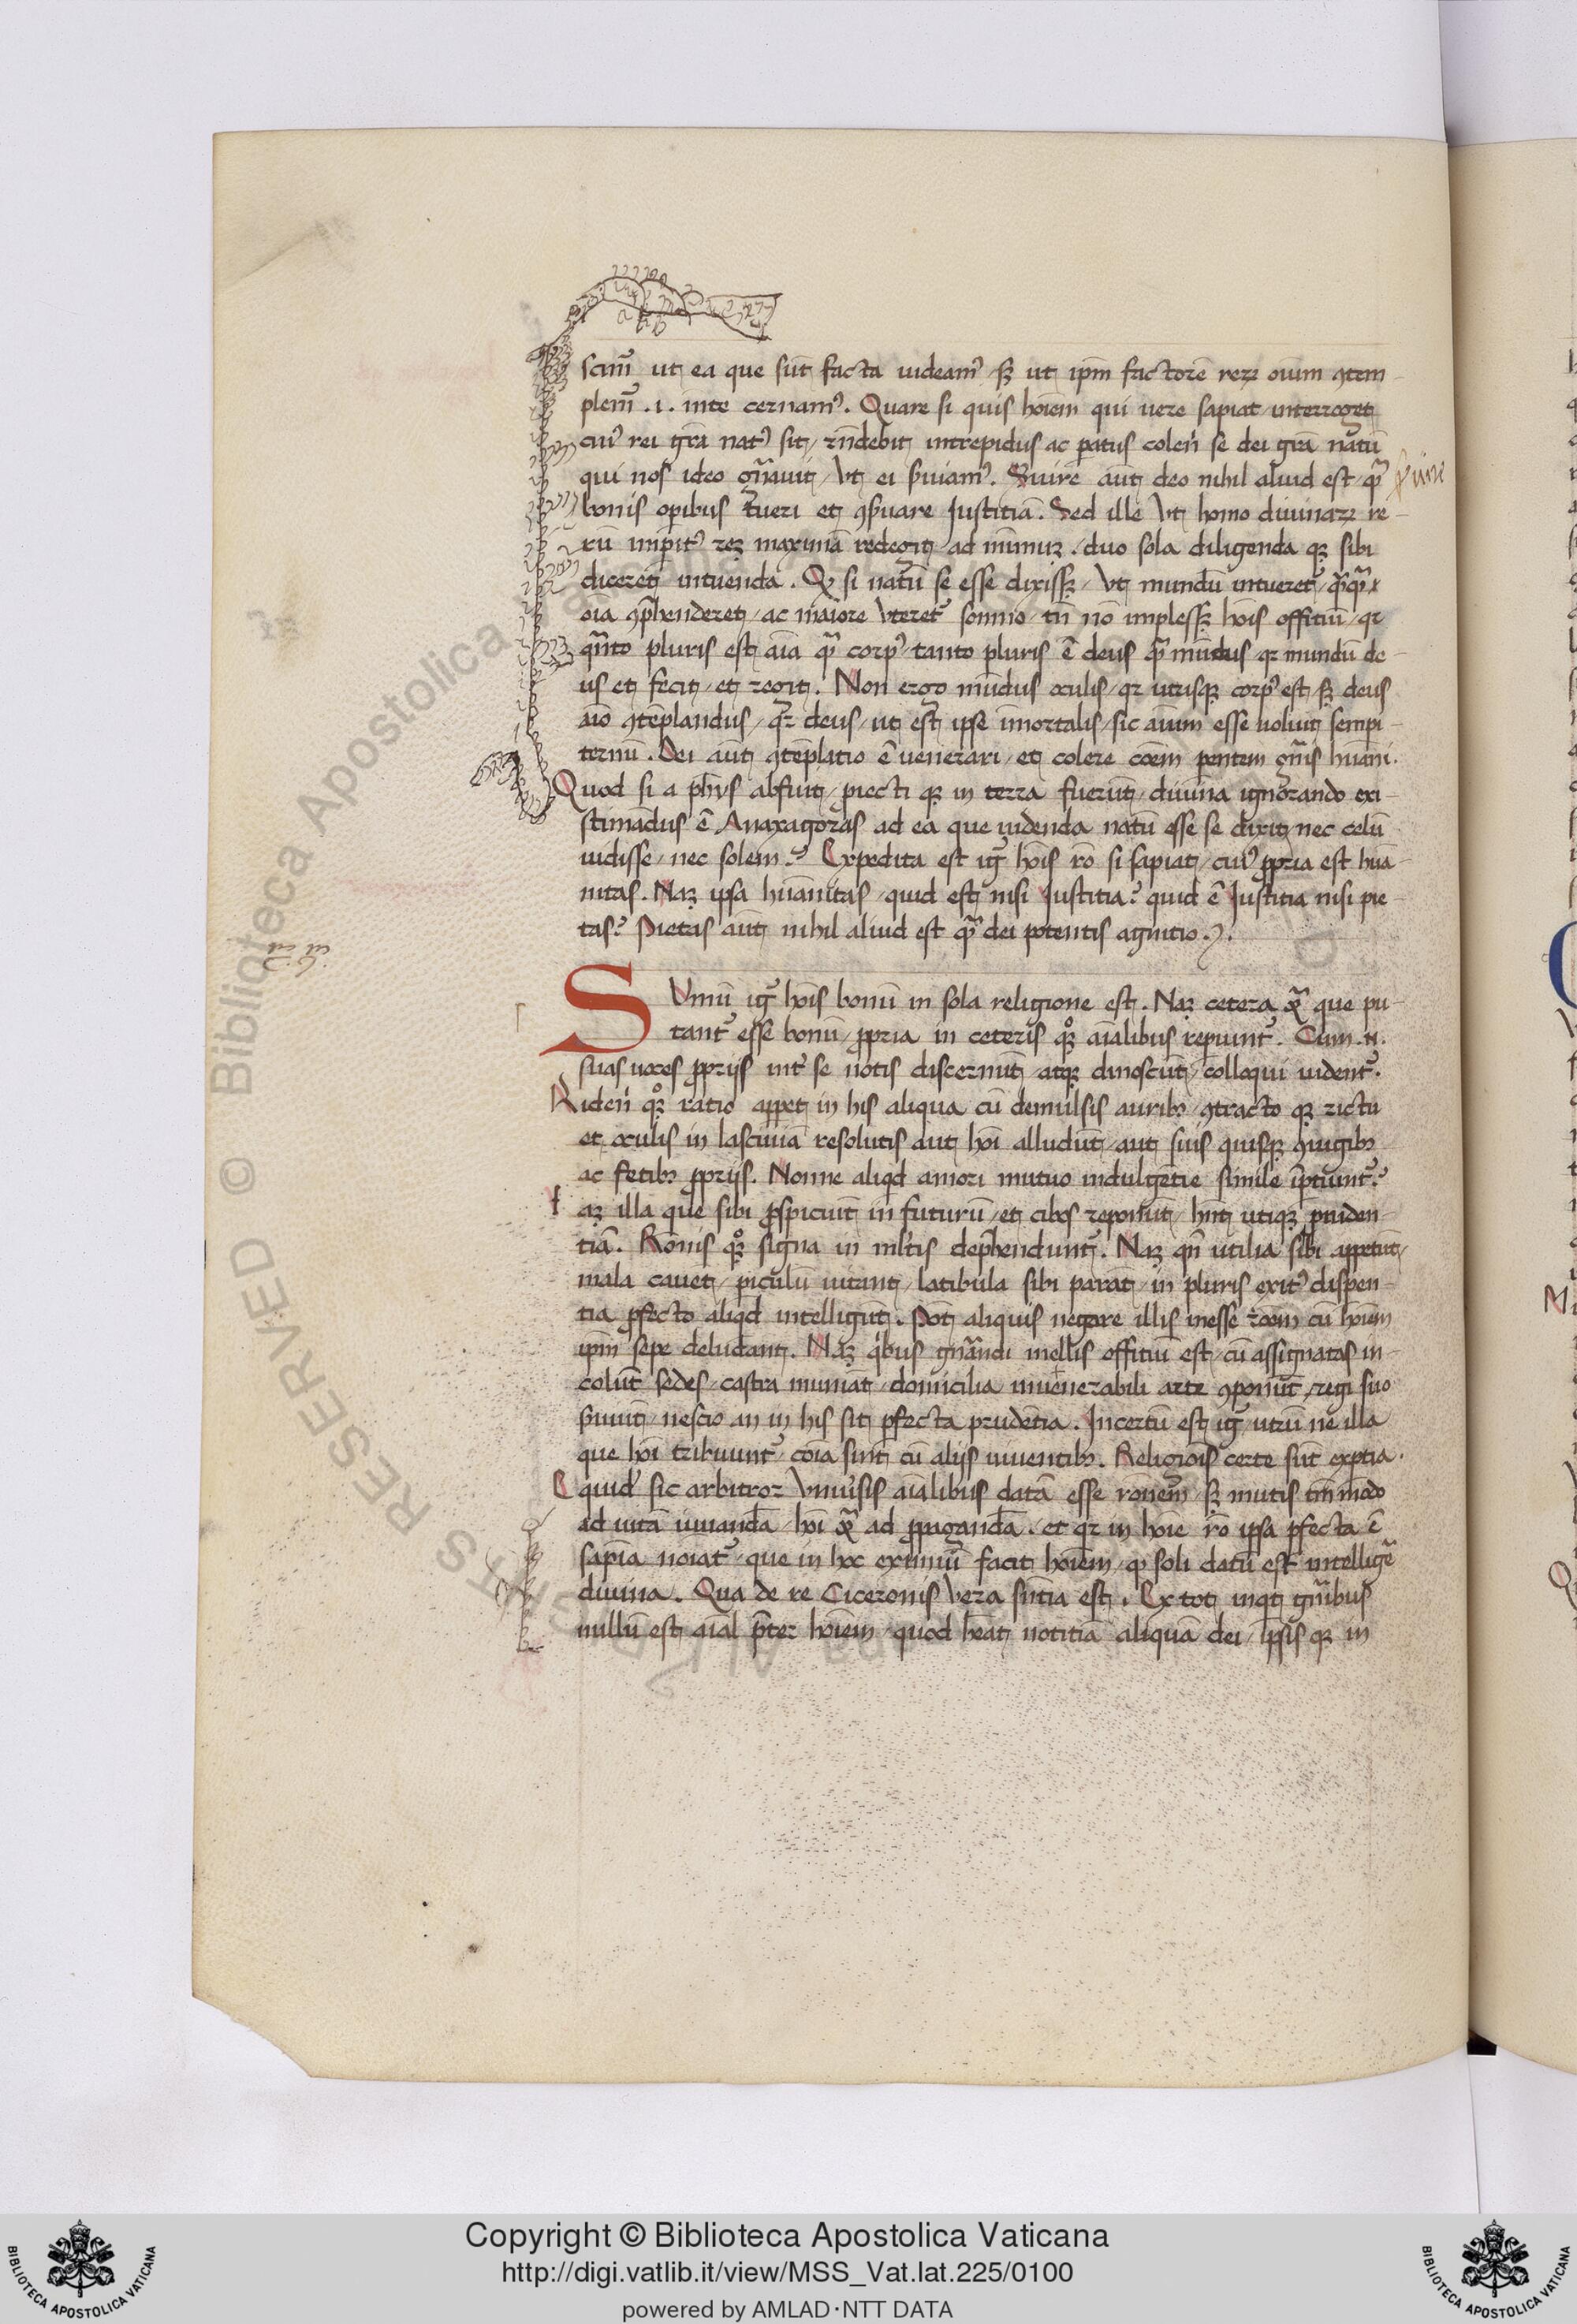 scim̄ ut ea que sūt facta uideamꝰ sꝫ ut ip̄m factorē reꝝ oīum ꝯtem-
plem̄ .i. mēte cernamꝰ. Quare si quis hoīem qui uere sapiat interroget
cuiꝰ rei gr̄a natꝰ sit, rn̄debit intrepidus ac patus colen̄ se dei gr̄a natū
qui nos ideo gn̄auit, vt ei ẜuiamꝰ. ẜuire aūt deo nihil aliud est qꝫ̄
ẜuire
bonis opibus tueri et ꝯẜuare Justitiā. Sed ille vt homo diuinaꝝ re-
rū imꝑitꝰ reꝫ maximā redegit ad minimuꝫ. duo sola diligenda qꝫ sibi
diceret intuenda. Qꝫ si natū se esse dixissꝫ, vt mundū intueret̄, qꝫ̄qꝫ̄
oīa ꝯp̄henderet, ac maiore vteret̄ somno, tn̄ nō implessꝫ hoīs offitiū, qr
qn̄to pluris est aīa qꝫ̄ corpꝰ, tanto pluris ē deus qꝫ̄ mūdus qr mundū de-
us et fecit, et regit. Non ergo mūdus oculis, qr utrisqꝫ corpꝰ est, sꝫ deus
aīo ꝯtēplandus, qr deus, ut est ipse īmortalis, sic aīum esse uoluit sempi-
ternū. Dei aūt ꝯtēplatio ē uenerari, et colere cōem parentem gn̄is hūani.
Quod si a ph̄ys abfuit, ꝓiecti qꝫ in terra fuerūt, diuina ignorando exi-
stimādus ē Anaxagoras ad ea que uidenda natū esse se dixit nec celū
uidisse, nec solem? Expedita est iḡ hoīs rō si sapiat, cuiꝰ ꝓpria est hūa-
nitas. Naꝫ ipsa hūanitas, quid est nisi Justitia? quid ē Justitia nisi pie-
tas? Pietas aūt nihil aliud est qꝫ̄ dei parentis agnitio.
SVmū iḡ hoīs bonū in sola religione est. Naꝫ cetera que pu-
tant̄ esse bonū, ꝓpria in ceteris qꝫ aīalibus reperiunt̄. Cum .n.
suas uoces ꝓprijs int̄ se notis discernūt, atqꝫ dinoscūt, colloqui uident̄.
Riden̄ qꝫ ratio apparet in his aliqua cū demulsis auribꝫ, ꝯtracto qꝫ rictu
et oculis in lasciuiā resolutis aut hoī alludūt, aut suis quisqꝫ ꝯiugibꝫ
ac fetibꝫ ꝓprijs. Nonne aliqd amori mutuo indulgētie simile īptiunt̄?
aꝫ illa que sibi ꝓspiciūt in futurū, et cibos reponūt, hn̄t utiqꝫ pruden-
tiā. Rōnis qꝫ signa in ml̄tis dep̄hendunt̄. Naꝫ qn̄ utilia sibi appetūt,
mala cauet, piculū uitant, latibula sibi parāt, in pluris exitꝰ dispen-
tia ꝓfecto aliqd intelligūt. Pōt aliquis negare illis inesse rōem cū hoīem
ip̄m sepe deludant. Naꝫ qbus gn̄andi mellis offitiū est, cū assignatas in-
colūt sedes, castra muniāt, domicilia inuenerabili arte ꝯponūt, regi suo
ẜuiūt, nescio an in his sit ꝑfecta prudētia. Incertū est iḡ utrū ne illa
que hoī tribuunt̄, cōia sint cū alijs uiuentibꝫ. Religiois certe sūt exptia.
Equid sic arbitror vniūsis aīalibus datā esse rōnem, sꝫ mutis tm̄modo
ad uitā tuendā, hoī ad ꝓpagandā. et qr in hoīe rō ipsa ꝑfecta ē
sapīa noīat̄, que in hoc eximiū facit hoīem, qꝫ soli datū est intelligē
diuina. Qua de re Ciceronis vera sn̄tia est. Ex tot inqt gn̄ibus
nullū est aīal p̄ter hoīem, quod hēat notitiā aliquā dei, ipsis qꝫ in
Copyright © Biblioteca Apostolica Vaticana
http://digi.vatlib.it/view/MSS_Vat.lat.225/0100
powered by AMLAD·NTT DATA